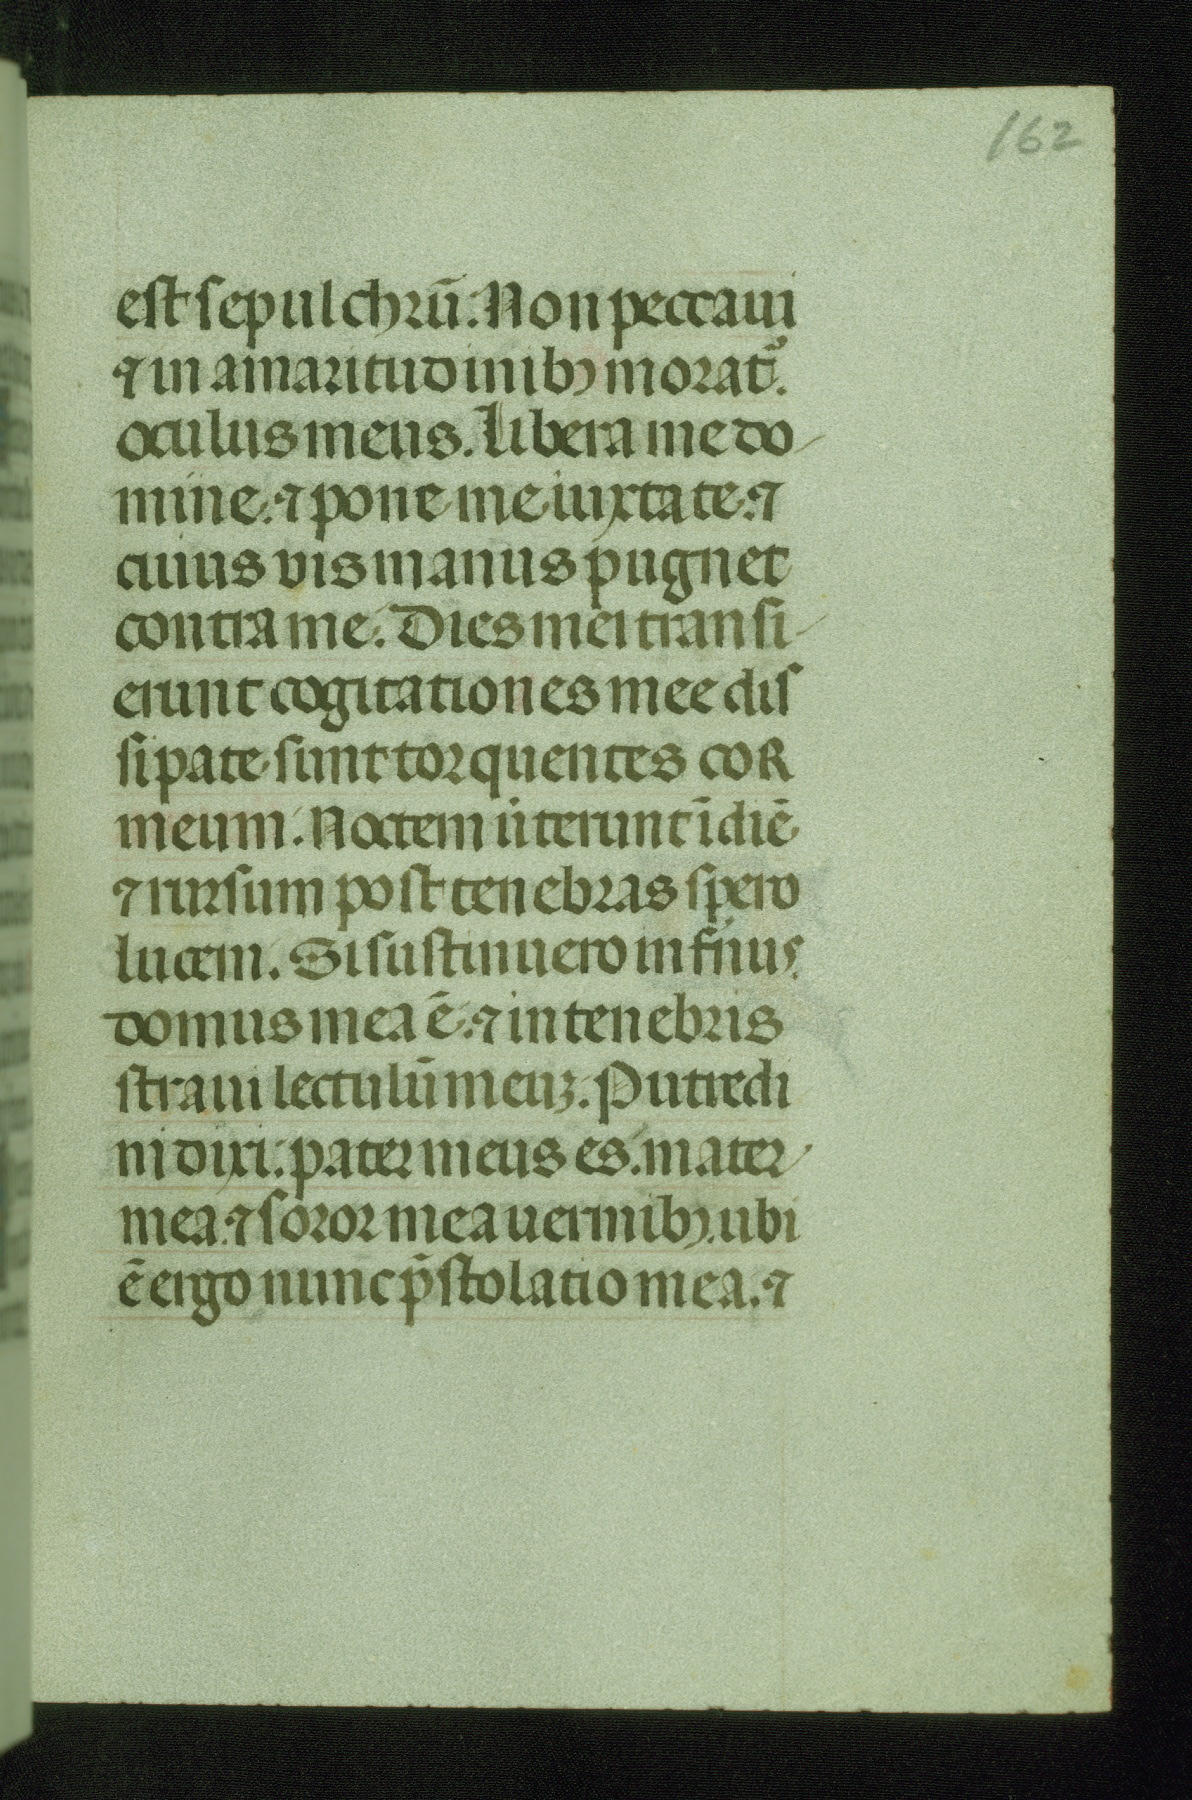 162
est sepulchrū. Non peccaui
⁊ in amaritudinibꝫ morat᷒.
oculus meus. Libera me do
mine. ⁊ pone me iuxta te. ⁊
cuius vis manus pugnet
contra me. Dies mei transi
erunt cogitationes mee dis
sipate sunt torquentes coR
meum. Noctem ūterunt ī diē
⁊ rursum post tenebras spero
lucem. Si sustinuero infñus
domus mea ē. ⁊ in tenebris
straui lectulū meuꝫ. Putredi
ni dixi. pater meus es. mater
mea. ⁊ soror mea uermibꝫ. ubi
ē ergo nunc p̄stolatio mea. ⁊